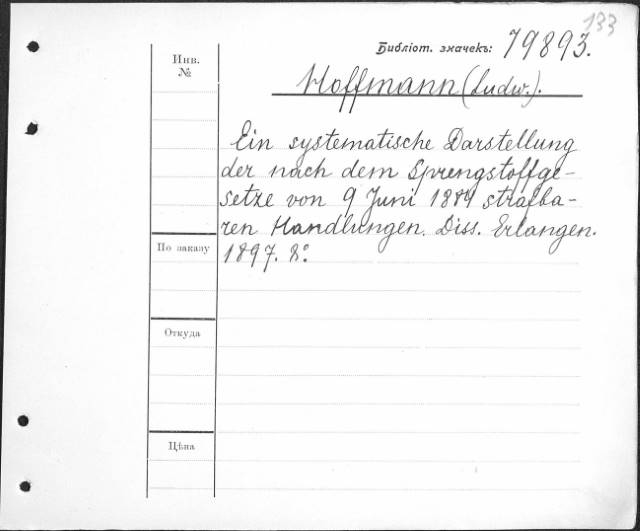 133
Библіот. значекъ: 79893.
Инв.
№
Hoffmann (Ludw.).
Ein systematische Darstellung
der nach dem Sprengstoffge-
setze von 9 Juni 1884 strafba-
ren Handlungen. Diss. Erlangen.
По заказу
1897. 8°.
Откуда
Цѣна